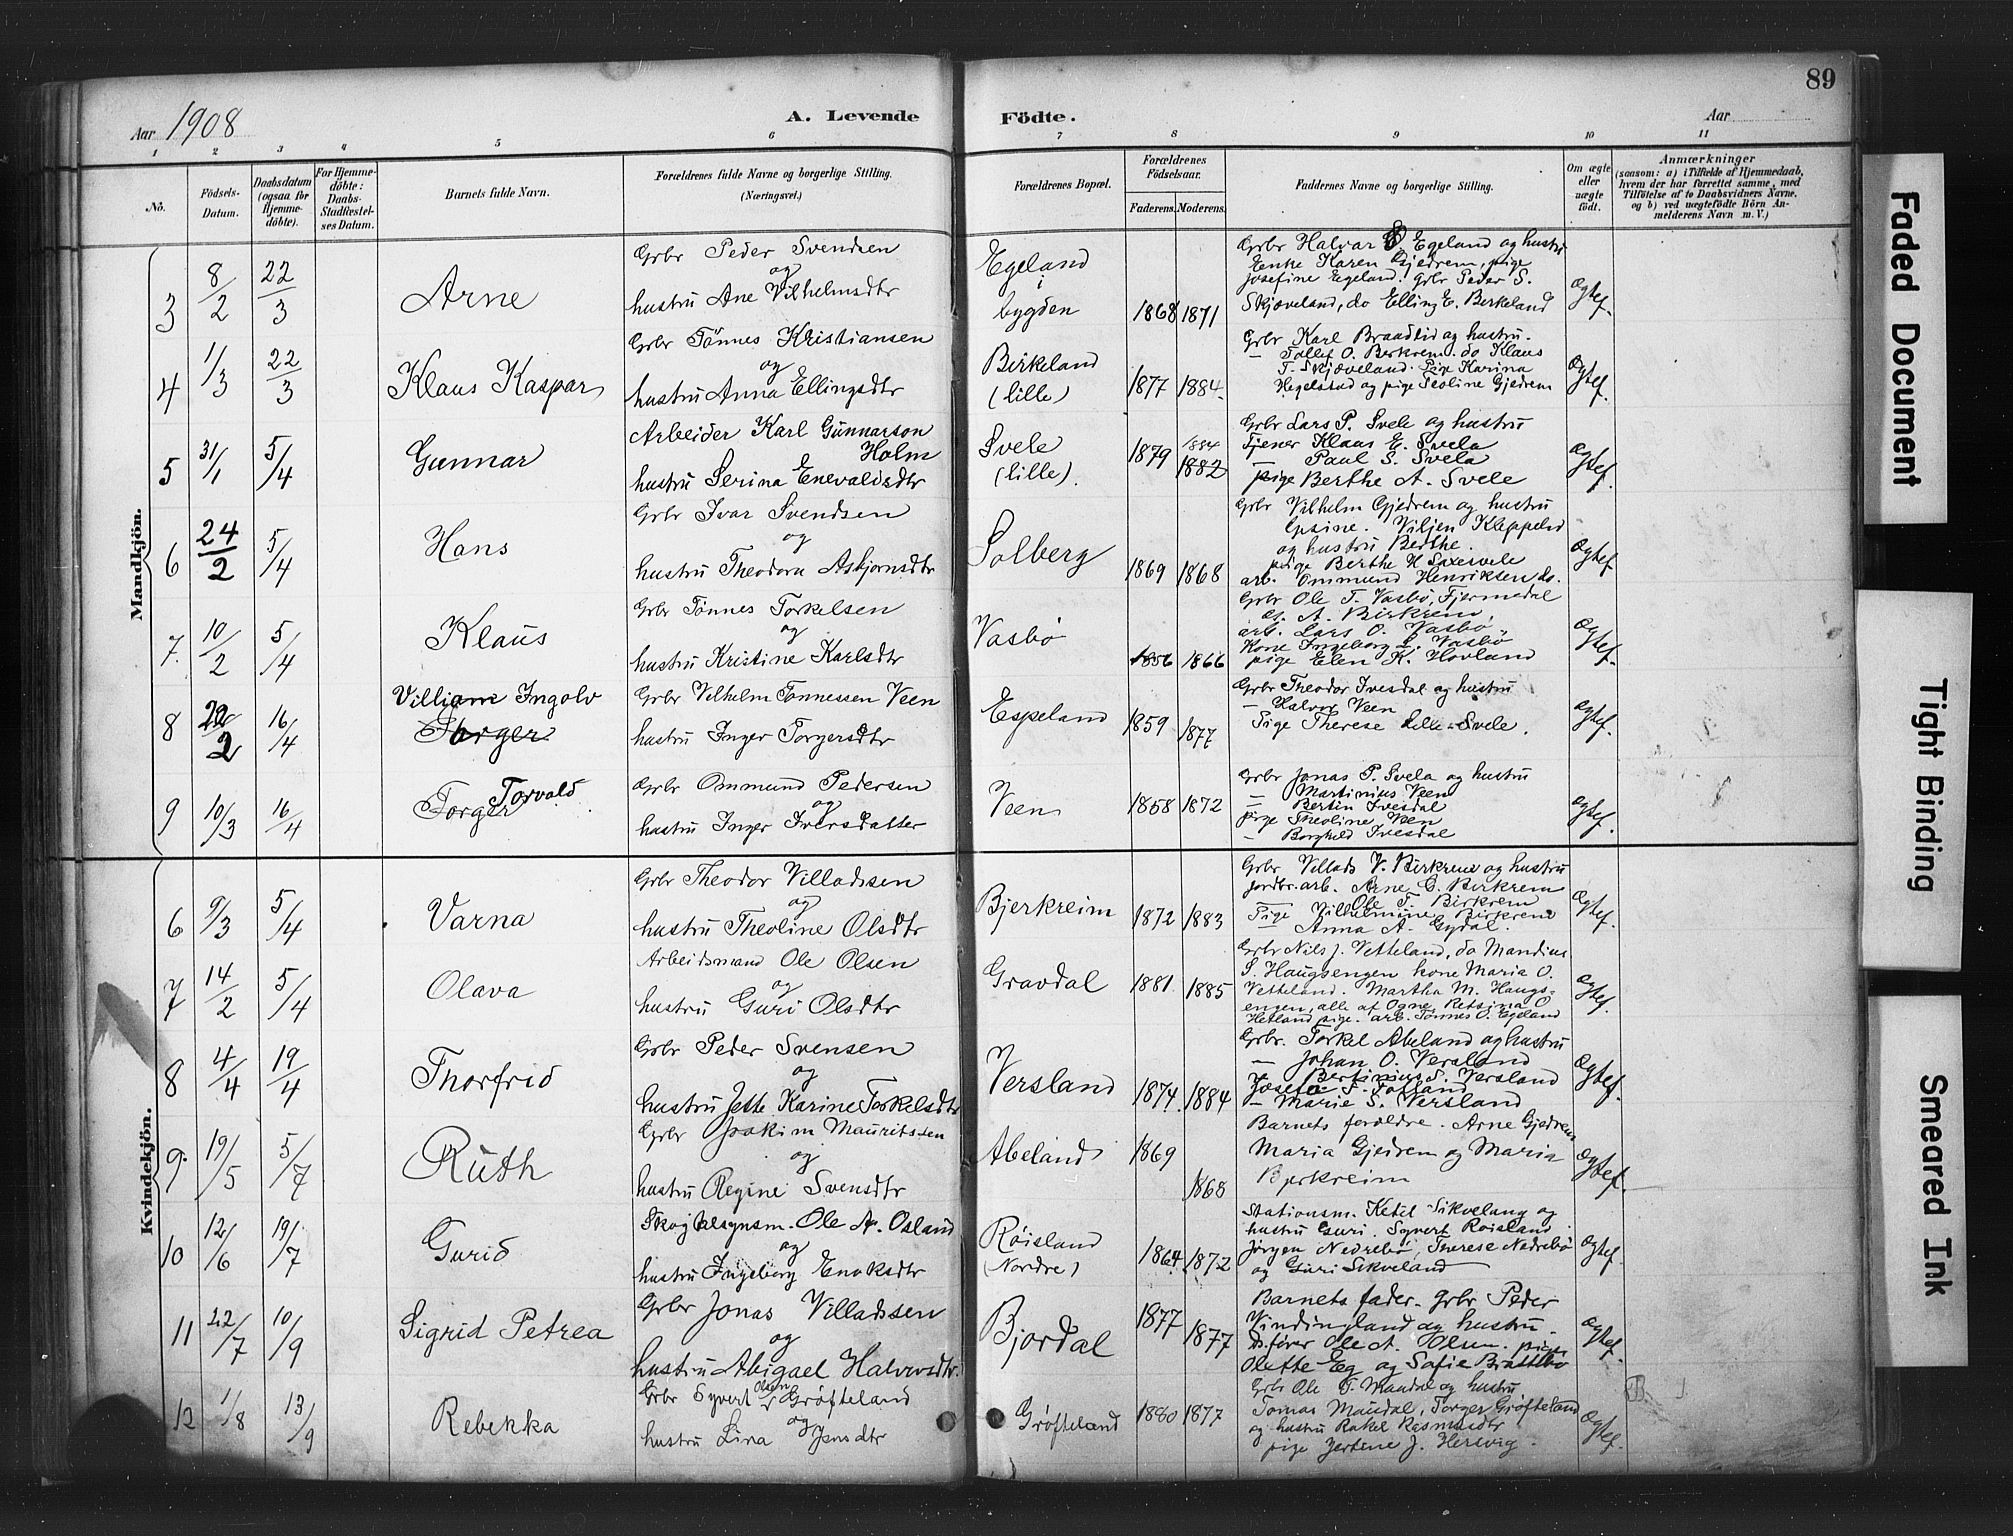 89
Aar 1908
A. Levende Födte.
Aar
1 2 3 4 5 6 7 8 9 10 11
No.
Födsels-Datum.
Daabsdatum (ogsaa for Hjemme-döbte).
For Hjemme-döbte: Daabs-Stadfæstel-ses Datum.
Barnets fulde Navn.
Forældrenes fulde Navne og borgerlige Stilling. (Næringsvei.)
Forældrenes Bopæl.
Forældrenes Födselsaar.
Faderens. Moderens.
Faddernes Navne og borgerlige Stilling.
Om ægte eller uægte födt.
Anmærkninger
(saasom: a) i Tilfælde af Hjemmedaab, hvem der har forrettet samme, med Tilföielse af to Daabsvidners Navne, og b) ved uægtefödte Börn An-melderens Navn m. V.)
Mandkjön.
3 8/2 22/3 Arne
Grbr Peder Svendsen
og
hustru Ane Vilhelmsdtr
Egeland i bygden 1868 1871
Grbr Halvar Egeland og hustru
Enke Karen Gjedrem, pige
Josefine Egeland. Grbr Peder S.
Skjæveland, do Elling E. Birkeland
Ægtef.
4 1/3 22/3 Klaus Kaspar
Grbr Tönnes Kristiansen
og
hustru Anna Ellingsdtr
Birkeland (lille) 1877 1884
Grbr Karl Braadlid og hustru.
— Tollef O. Berkrem. do Klaus
T. Skjæveland. Pige Karina
Hegelstad og pige Seoline Gjedrem
Ægtef.
5 31/1 5/4 Gunnar
Arbeider Karl Gunnarson
Holm
hustru Serina Enevaldsdtr
Svele (lille). 1879 1884 1882
Grbr Lars P. Svele og hustru
Tjener Klaus E. Svela
— Paul S. Svela
pige Berthe A. Svele
Ægtef.
6 24/2 5/4 Hans
Grbr Ivar Svendsen
og
hustru Theodora Asbjornsdtr
Solberg 1869 1868
Grbr Vilhelm Gjedrem og hustru
Gesine. Viljen Kleppelid
og hustru Berthe.
pige Berthe H Saxesvele
arb. Ommund Henriksen do.
Ægtef
7. 10/2 5/4 Klaus
Grbr Tönnes Torkelsen
og
hustru Kristine Karlsdtr
Vasbø 1856 1866
Grbr Ole T. Vasbö, Fjermedal
A. Birkrem
arb. Lars O. Vasbö
Kone Ingeborg L. Vasbö
pige Elen K. Hovland
Ægtef.
8 22/2 16/4 Villiam Ingolv
Torger
Grbr Vilhelm Tønnessen Veen
hustru Inger Torgersdtr
Espeland 1859 1877
Grbr Theodor Ivesdal og hustru
— Halvor Veen
Pige Therese Lille-Svele.
Ægtef.
9 10/3 16/4 Torger Torvald
Grbr Ommund Pedersen
og
hustru Inger Iversdatter
Veen 1858 1872
Grbr Jonas P. Svela og hustru
— Martinius Veen
— Bertin Ivesdal
pige Theoline Veen
— Borghild Ivesdal
Ægtef.
Kvindekjön.
6 9/3 5/4 Varna
Grbr Theodor Villadssen
og
hustru Theoline Olsdtr
Bjerkreim 1872 1883
Grbr Villads V. Birkrem og hustru
jordbr. arb. Arne C. Birkrem
Ole T. Birkrem
Pige Vilhelmine Birkrem
— Anna A. Gydal.
Ægtef.
7 14/2 5/4 Olava
Arbeidsmand Ole Olsen
og
hustru Guri Olsdtr
Gravdal 1881 1885
Grbr Nils J. Vetteland, do Mandius
S. Haugsengen kone Maria O.
Vetteland. Martha M. Haugs-
engen, alle af Ogne, Retsina O
Hetland pige. arb. Tönnes O. Egeland
Ægtef.
8 4/4 19/4 Thorfrid
Grbr Peder Svensen
og
hustru Jette Karine Torkelsdtr
Versland 1874 1884
Grbr. Torkel Abeland og hustru
— Johan O. Versland
— Bertinius S. Versland
Josefa T. Fotland
— Marie S. Versland
Ægtef.
9. 19/5 5/7 Ruth
Grbr Joakim Mauritssen
og
hustru Regine Svensdtr
Abeland 1869 1868
Barnets forældre. Arne Gjedrem
Maria Gjedrem og Maria
Bjerkreim
Ægtef.
10 12/6 19/7 Gurid
Skogtilsynsm. Ole A. Osland
og
hustru Ingeborg Enoksdtr
Röisland (Nordre) 1864 1872
Stationsm. Ketil Sikveland og
hustru Guri. Syvert Röisland
Jörgen Nedrebö, Therese Nedrebö
og Guri Sikveland
Ægtef.
11 22/7 10/9 Sigrid Petrea
Grbr Jonas Villadssen
og
hustru Abigael Halvorsdtr.
Bjordal 1877 1877
Barnets fader. Grbr Peder
Vindingland og hustru.
Ole A. Olsen. pige
Olette Eg og Sofie Brattebø
Ægtef.
12 1/8 13/9 Rebekka
Grbr Syvert Olsen Grøfteland
og
hustru Lina Jensdtr
Grøfteland 1880 1877
Grbr Ole T. Maudal og hustru
Tomas Mausdal, Torger Grøfteland
og hustru Rakel Rasmusdtr
pige Jertine J. Hersvig.
Ægtef.
Faded Document
Tight Binding
Smeared Ink